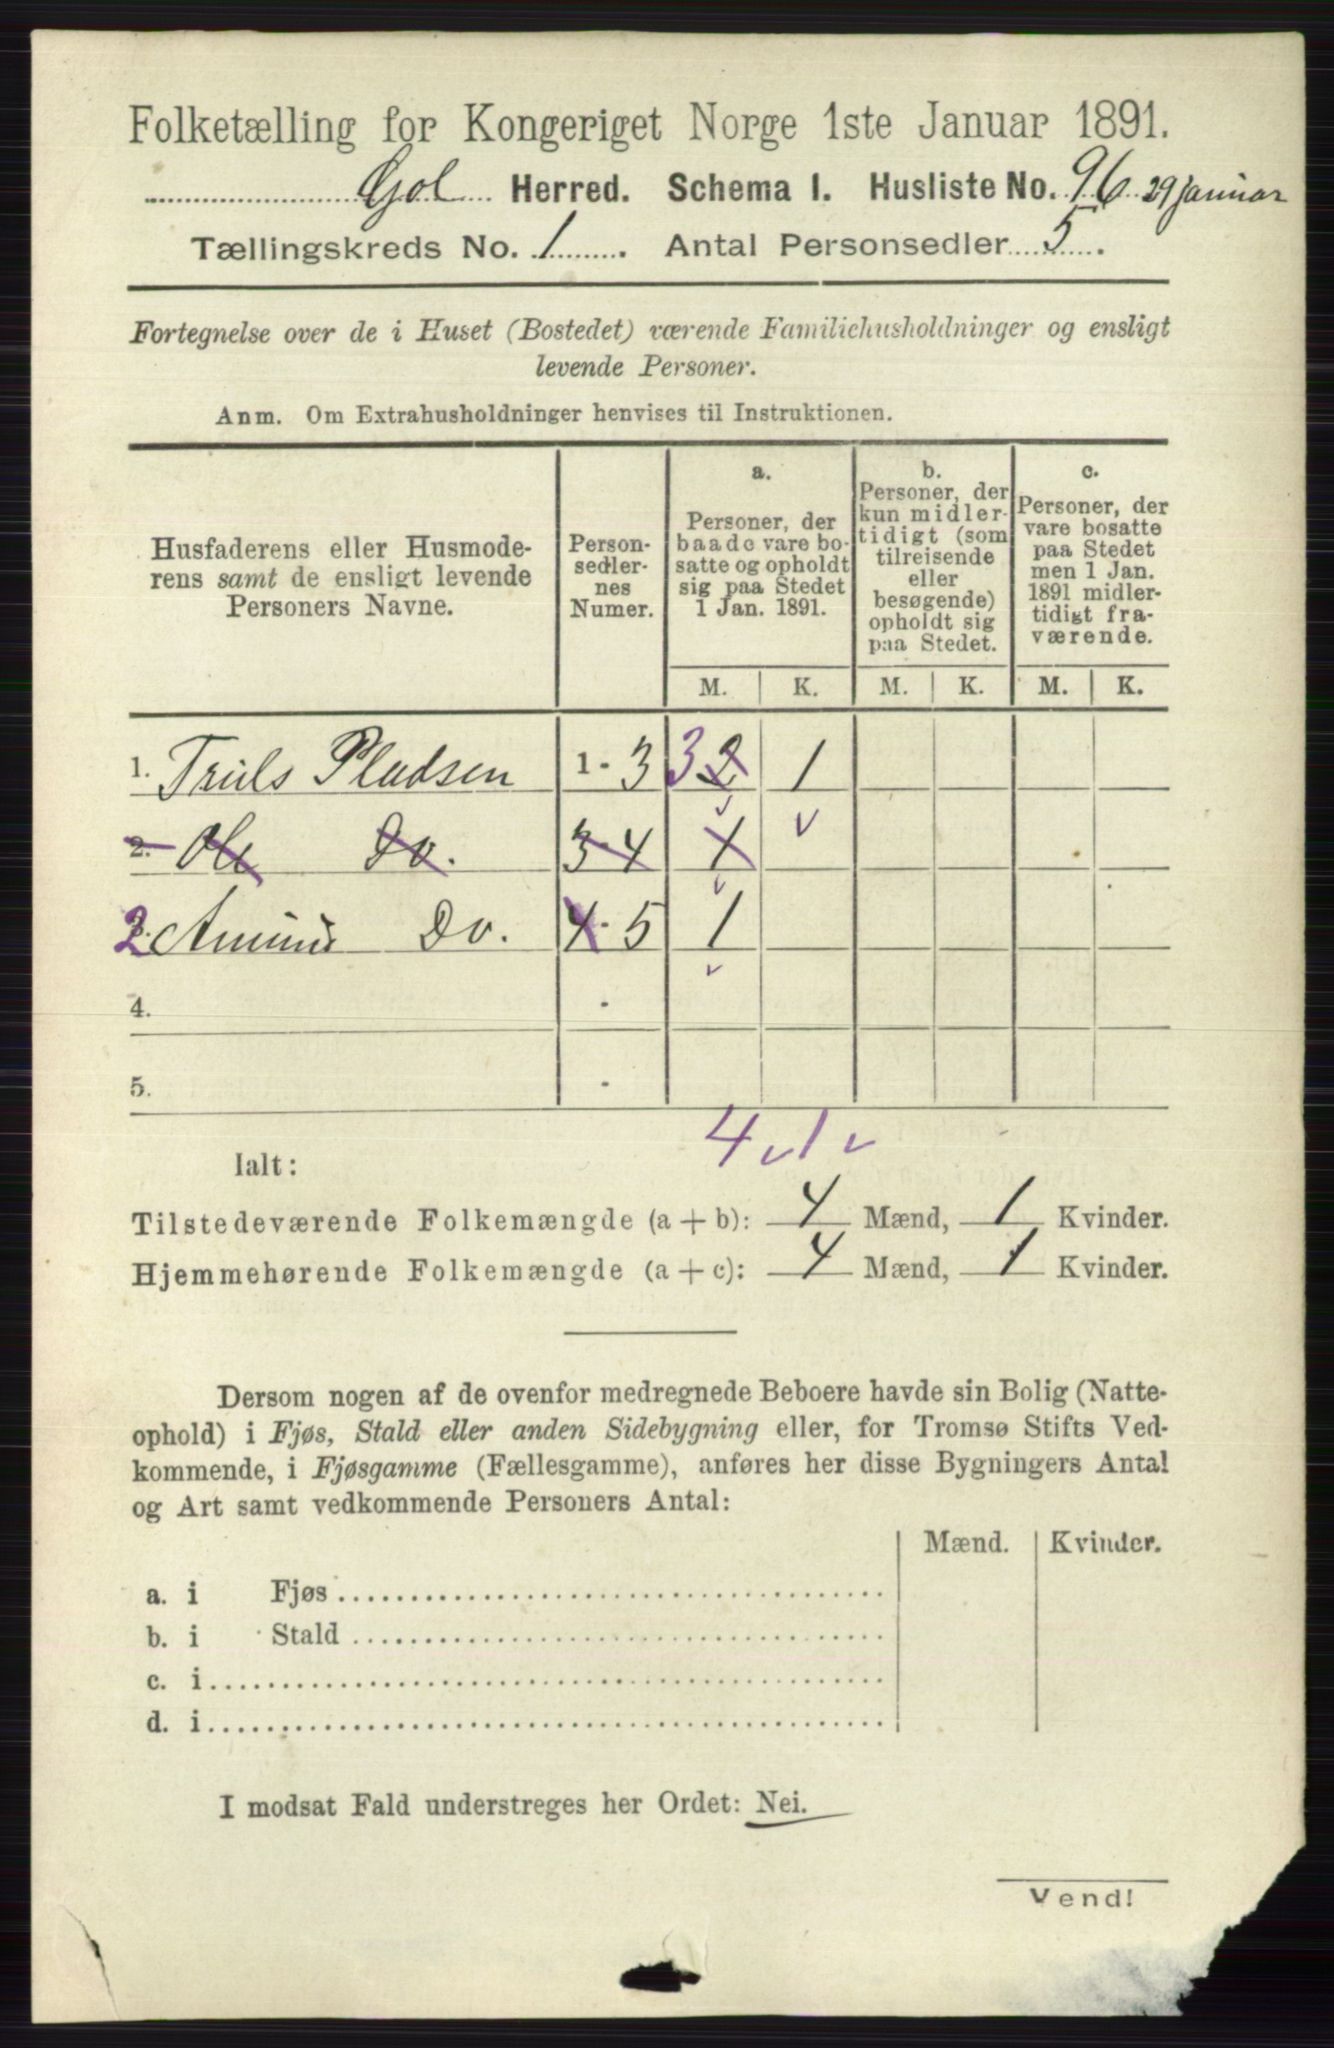 Folketælling for Kongeriget Norge 1ste Januar 1891.
Gol Herred. Schema I. Husliste No. 96 29 Januar
Tællingskreds No. 1. Antal Personsedler 5.
Fortegnelse over de i Huset (Bostedet) værende Familiehusholdninger og ensligt
levende Personer.
Anm. Om Extrahusholdninger henvises til Instruktionen.
Husfaderens eller Husmode-
rens samt de ensligt levende
Personers Navne.
Person-
sedler-
nes
Numer.
a.
Personer, der
baade vare bo-
satte og opholdt
sig paa Stedet
1 Jan. 1891.
b.
Personer, der
kun midler-
tidigt (som
tilreisende
eller
besøgende)
opholdt sig
paa Stedet.
c.
Personer, der
vare bosatte
paa Stedet
men 1 Jan.
1891 midler-
tidigt fra-
værende.
M. K. M. K. M. K.
1. Truls Pladsen 1 - 3 3 2 1
2. Ole Do. 3 - 4 1
2 Amund Do. 4 - 5 1
4. -
5. -
4 1
Ialt:
Tilstedeværende Folkemængde (a + b): 4 Mænd, 1 Kvinder.
Hjemmehørende Folkemængde (a + c): 4 Mænd, 1 Kvinder.
Dersom nogen af de ovenfor medregnede Beboere havde sin Bolig (Natte-
ophold) i Fjøs, Stald eller anden Sidebygning eller, for Tromsø Stifts Ved-
kommende, i Fjøsgamme (Fællesgamme), anføres her disse Bygningers Antal
og Art samt vedkommende Personers Antal:
Mænd. Kvinder.
a. i Fjøs
b. i Stald
c. i
d. i
I modsat Fald understreges her Ordet: Nei.
Vend!